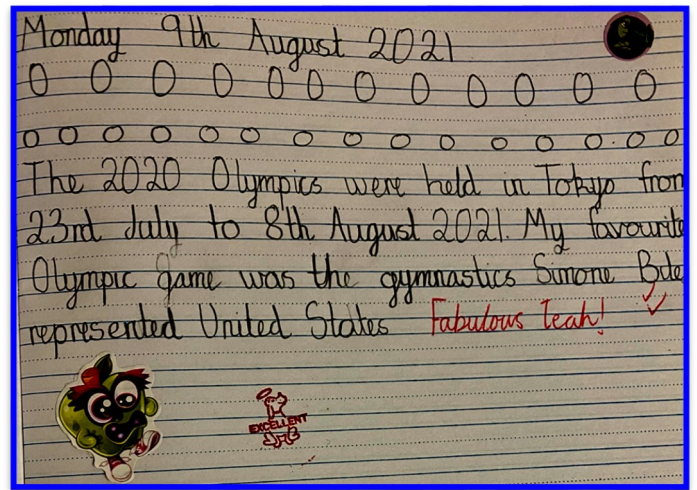 Monday 9th August 2021
O O O O O O O O O O O O
O O O O O O O O O O O O O O
The 2020 Olympics were held in Tokyo from
23rd July to 8th August 2021. My favourite
Olympic game was the gymnastics Simone Bile
represented United States Fabulous Leah!
EXCELLENT